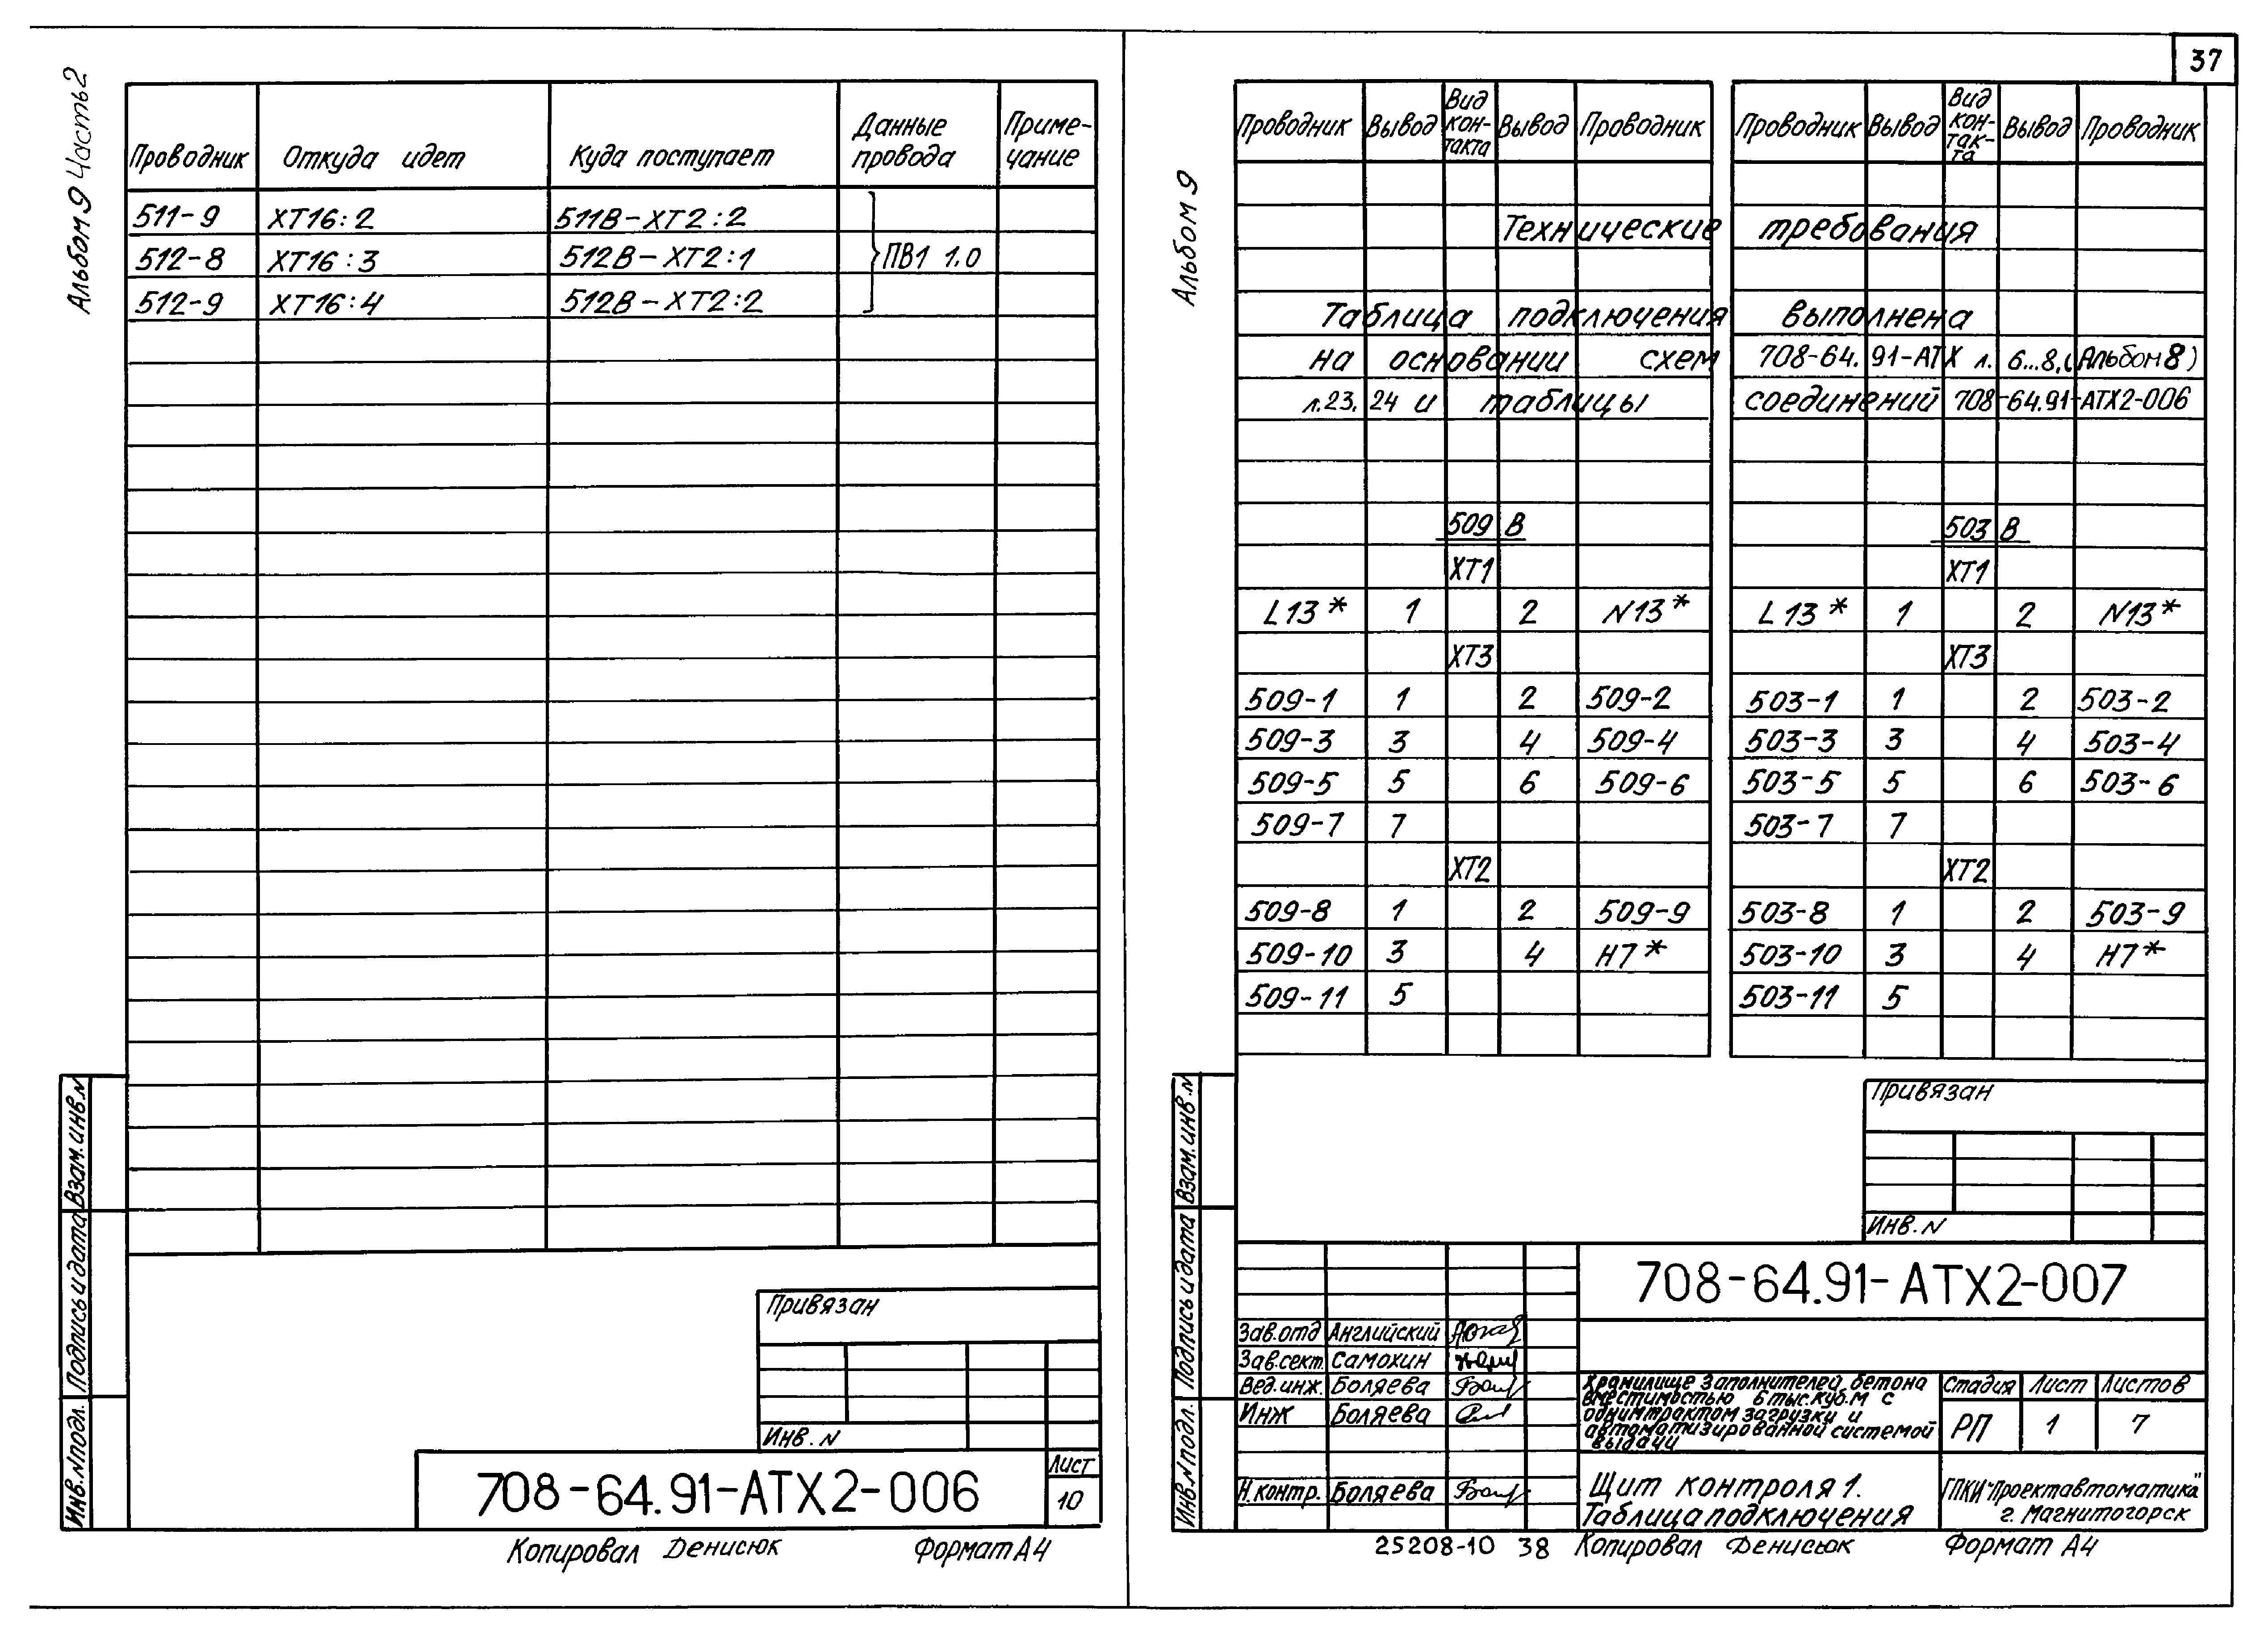 37
Альбом 9 Часть 2
Проводник Откуда идет Куда поступает Данные провода Приме-чание
511-9 XT16:2 511В-XT2:2
512-8 XT16:3 512В-XT2:1 ПВ1 1,0
512-9 XT16:4 512В-XT2:2
Взам.инв.N
Подпись и дата
Инв.N подл.
Привязан
Инв. N
708-64.91-АТХ2-006
Лист
10
Копировал Денисюк Формат А4
Альбом 9
Проводник Вывод Вид кон-такта Вывод Проводник Проводник Вывод Вид кон-так-та Вывод Проводник
Технические требования
Таблица подключения выполнена
на основании схем 708-64.91-АТХ л. 6...8, (Альбом 8)
л.23, 24 и таблицы соединений 708-64.91-АТХ2-006
509 В 503 В
XT1 XT1
L13* 1 2 N13* L13* 1 2 N13*
XT3 XT3
509-1 1 2 509-2 503-1 1 2 503-2
509-3 3 4 509-4 503-3 3 4 503-4
509-5 5 6 509-6 503-5 5 6 503-6
509-7 7 503-7 7
XT2 XT2
509-8 1 2 509-9 503-8 1 2 503-9
509-10 3 4 Н7* 503-10 3 4 Н7*
509-11 5 503-11 5
Взам.инв.N
Подпись и дата
Инв.N подл.
Привязан
Инв. N
708-64.91-АТХ2-007
Зав.отд Английский
Зав.сект. Самохин
Вед.инж. Боляева
Инж Боляева
Н.контр. Боляева
Хранилище заполнителей бетона
вместимостью 6 тыс.куб.м с
одним трактом загрузки и
автоматизированной системой
выдачи
Стадия Лист Листов
РП 1 7
Щит контроля 1.
Таблица подключения
ГПКИ "Проектавтоматика"
г. Магнитогорск
25208-10 38 Копировал Денисюк Формат А4